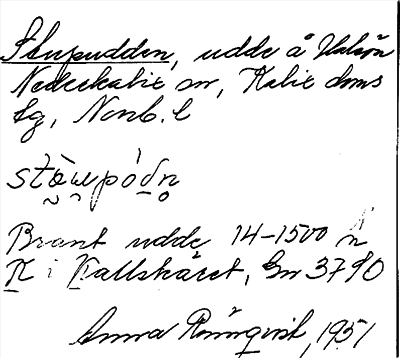 Stupudden, udde å Halsön
Nederkalix sn, Kalix doms
lg, Norrb. l
Brant udde 14–1500 m
N i Kallskäret, Gn 3790
Anna Rönnqvist, 1951